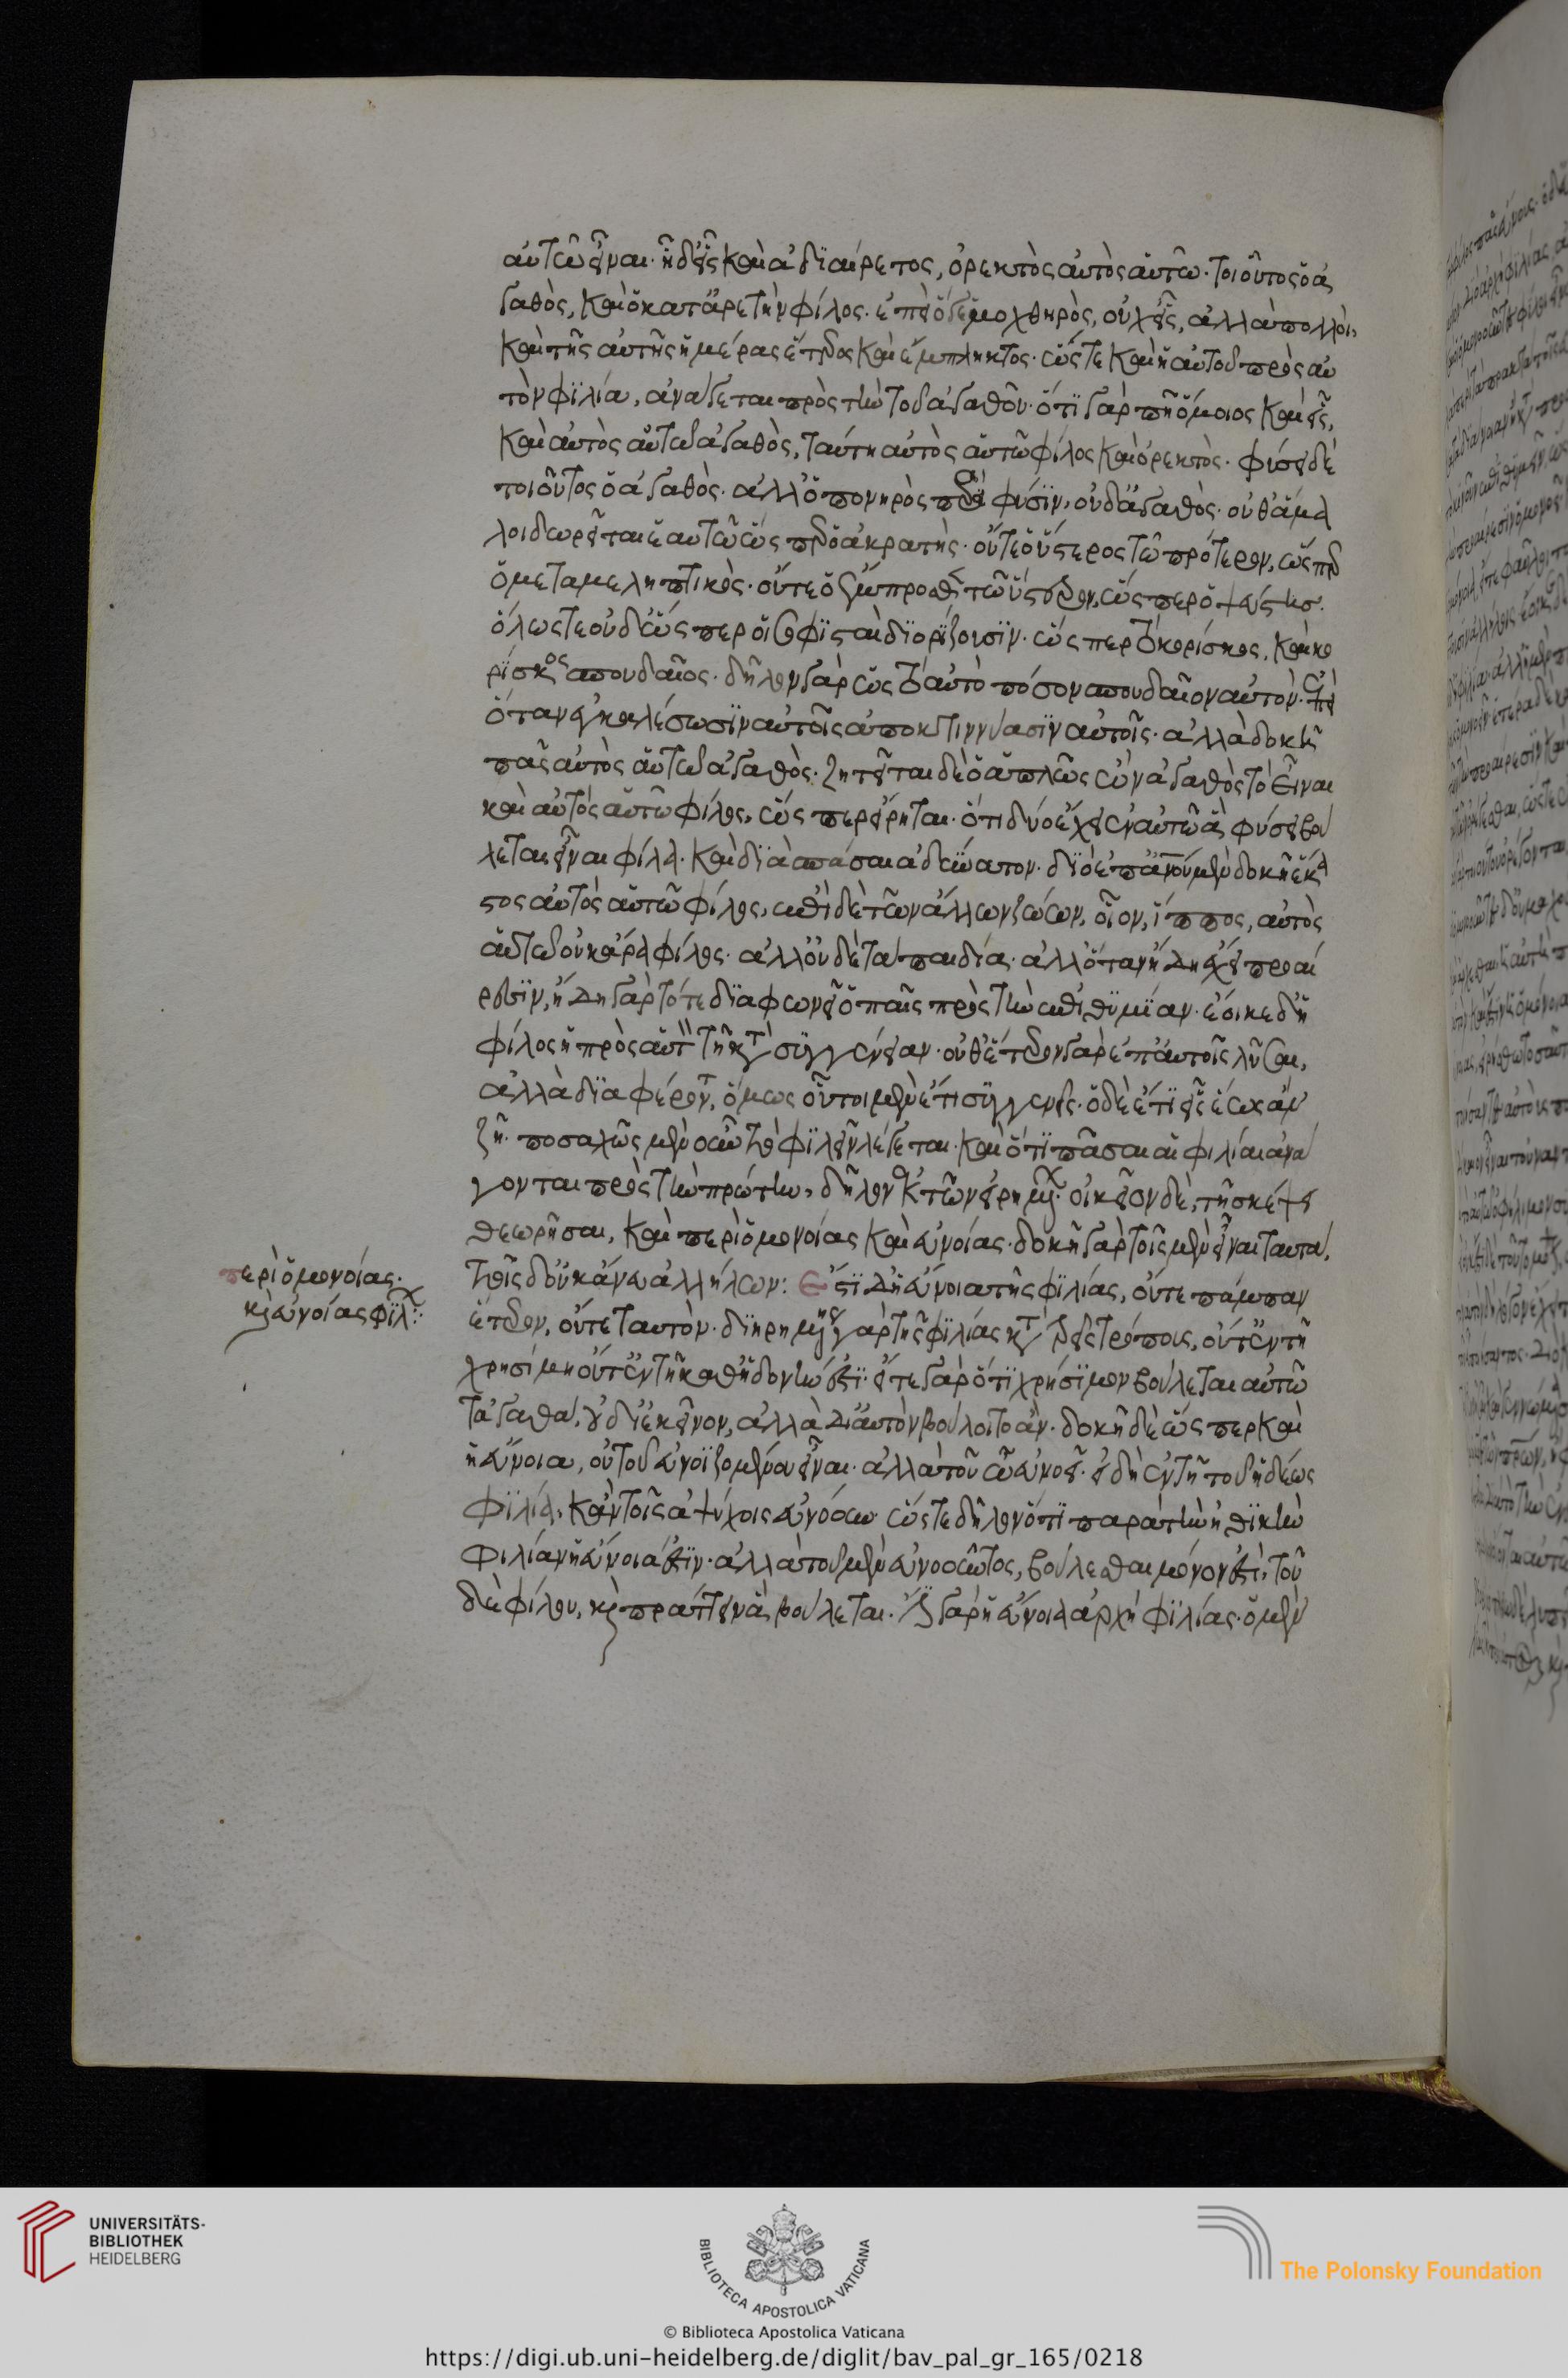 αὐτῶ εἶναι. ἢ δ' εἷς καὶ ἀδϊαίρετος, ὀρεκτὸς αὐτὸς αὑτῶ. τοιοῦτος ὁ ἀ
γαθὸς, καὶ ὁ κατ' ἀρετὴν φίλος. ἐπεὶ ὅ γε μοχθηρὸς, οὐχ εἷς, ἀλλὰ πολλοὶ,
καὶ τῆς αὐτῆς ἡμέρας ἕτερος καὶ ἔμπληκτος. ὥστε καὶ ἡ αὐτοῦ πρὸς αὑ
τὸν φϊλία, ἀνάγεται πρὸς τὴν τοῦ ἀγαθοῦ. ὅτϊ γάρ πῃ ὅμοιος καὶ εἷς,
καὶ αὐτὸς αὑτῶ ἀγαθὸς, ταύτη αὐτὸς αὑτῶ φίλος καὶ ὀρεκτὸς. φύσει δὲ
τοιοῦτος ὁ ἀγαθὸς. ἀλλ' ὁ πονηρὸς παρὰ φύσϊν. οὐδ' ἀγαθὸς. οὐθ' ἅμα
λοιδωρεῖται ἑαυτῶ ὥσπερ ὁ ἀκρατὴς. οὔτε ὁ ὕστερος τῶ πρότερον, ὥσπερ
ὁ μεταμελητικὸς. οὔτε ὁ ἔμπροσθεν τῶ ὕστερον, ὥσπερ ὁ ψεύστης.
ὅλως τε οὐδ' ὥσπερ οἱ σοφϊσταὶ δϊορίζουσϊν. ὥσπερ τὸ κορίσκος, καὶ κο
ρίσκος σπουδαῖος. δῆλον γὰρ ὡς τὸ αὐτὸ πόσον σπουδαῖον αὐτὸν. ἐπεὶ
ὅταν ἐγκαλέσωσϊν αὐτοῖς ἀποκτιννύασϊν αὐτοῖς. ἀλλὰ δοκεῖ
πᾶς αὐτὸς αὑτῶ ἀγαθὸς. ζητεῖται δὲ ὁ ἁπλῶς ὢν ἀγαθὸς τὸ εἶναι
καὶ αὐτὸς αὑτῶ φίλος, ὥσπερ εἴρηται. ὅτι δύο ἔχει ἐν αὑτῶ ἃ φύσει βού
λεται εἶναι φίλα. καὶ δϊασπάσαι ἀδύνατον. δϊὸ ἐπ' ἀνοῦ μὲν δοκεῖ ἕκα
στος αὐτὸς αὑτῶ φίλος, ἐπὶ δὲ τῶν ἄλλων ζώων, οἷον, ἵππος, αὐτὸς
αὑτῶ οὐκ ἄρα φίλος. ἀλλ' οὐδὲ τὰ παιδία. ἀλλ' ὅταν ἤδη ἔχει προαί
ρεσϊν, ἤδη γὰρ τότε δϊαφωνεῖ ὁ παῖς πρὸς τὴν ἐπιθϋμίαν. ἔοικε δ' ἡ
φίλος ἡ πρὸς αὑτὸν τῆ κατὰ συγγένειαν. οὐθέτερον γὰρ ἐπ' αὐτοῖς λῦσαι,
ἀλλὰ δϊαφέρονται, ὅμως οὗτοι μὲν ἔτι συγγενεῖς. ὁ δὲ ἔτϊ εἷς ἕως ἂν
ζῆ. ποσαχῶς μὲν οὖν τὸ φϊλεῖν λέγεται. καὶ ὅτϊ πᾶσαι αἱ φιλίαι ἀνά
γονται πρὸς τὴν πρώτην, δῆλον ἐκ τῶν εἰρημένων. οἰκεῖον δὲ, τῆ σκέψει
θεωρῆσαι, καὶ περὶ ὁμονοίας καὶ εὐνοίας. δοκεῖ γὰρ τοῖς μὲν εἶναι ταυτά,
τοῖς δ' οὐκ ἄνευ ἀλλήλων: Ἔστϊ δὴ εὔνοια τῆς φϊλίας, οὔτε πάμπαν
ἕτερον, οὔτε ταυτὸν. δϊηρημένης γὰρ τῆς φϊλίας κατὰ τρεῖς τρόποις, οὔτ' ἐν τῆ
χρησίμη οὔτ' ἐν τῆ καθ' ἡδονὴν ἐστϊ. εἴτε γὰρ ὅτϊ χρήσϊμον βούλεται αὐτῶ
τἀγαθά, οὐ δι' ἐκεῖνον, ἀλλὰ δι' αὐτὸν βούλοιτο ἂν. δοκεῖ δὲ ὥσπερ καὶ
ἡ εὔνοια, οὐ τοῦ εὐνοϊζομένου εἶναι. ἀλλὰ τοῦ ὧ εὐνοεῖ. εἰ δὴ ἐν τῆ τοῦ ἡδέως
φϊλία, κἂν τοῖς ἀψύχοις εὐνόουν. ὥστε δῆλον ὅτϊ παρὰ τὴν ἠθϊκὴν
φιλίαν ἡ εὔνοια ἐστϊν. ἀλλὰ τοῦ μὲν εὐνοοῦντος, βούλεσθαι μόνον ἐστὶ. τοῦ
δὲ φίλου, καὶ πράττειν ἃ βούλεται. ἔστι γὰρ ἡ εὔνοια ἀρχὴ φϊλίας. ὁ μὲν
περὶ ὁμονοίας.
καὶ εὐνοίας φϊλ:
UNIVERSITÄTS-
BIBLIOTHEK
HEIDELBERG
BIBLIOTECA APOSTOLICA VATICANA
© Biblioteca Apostolica Vaticana
The Polonsky Foundation
https://digi.ub.uni-heidelberg.de/diglit/bav_pal_gr_165/0218